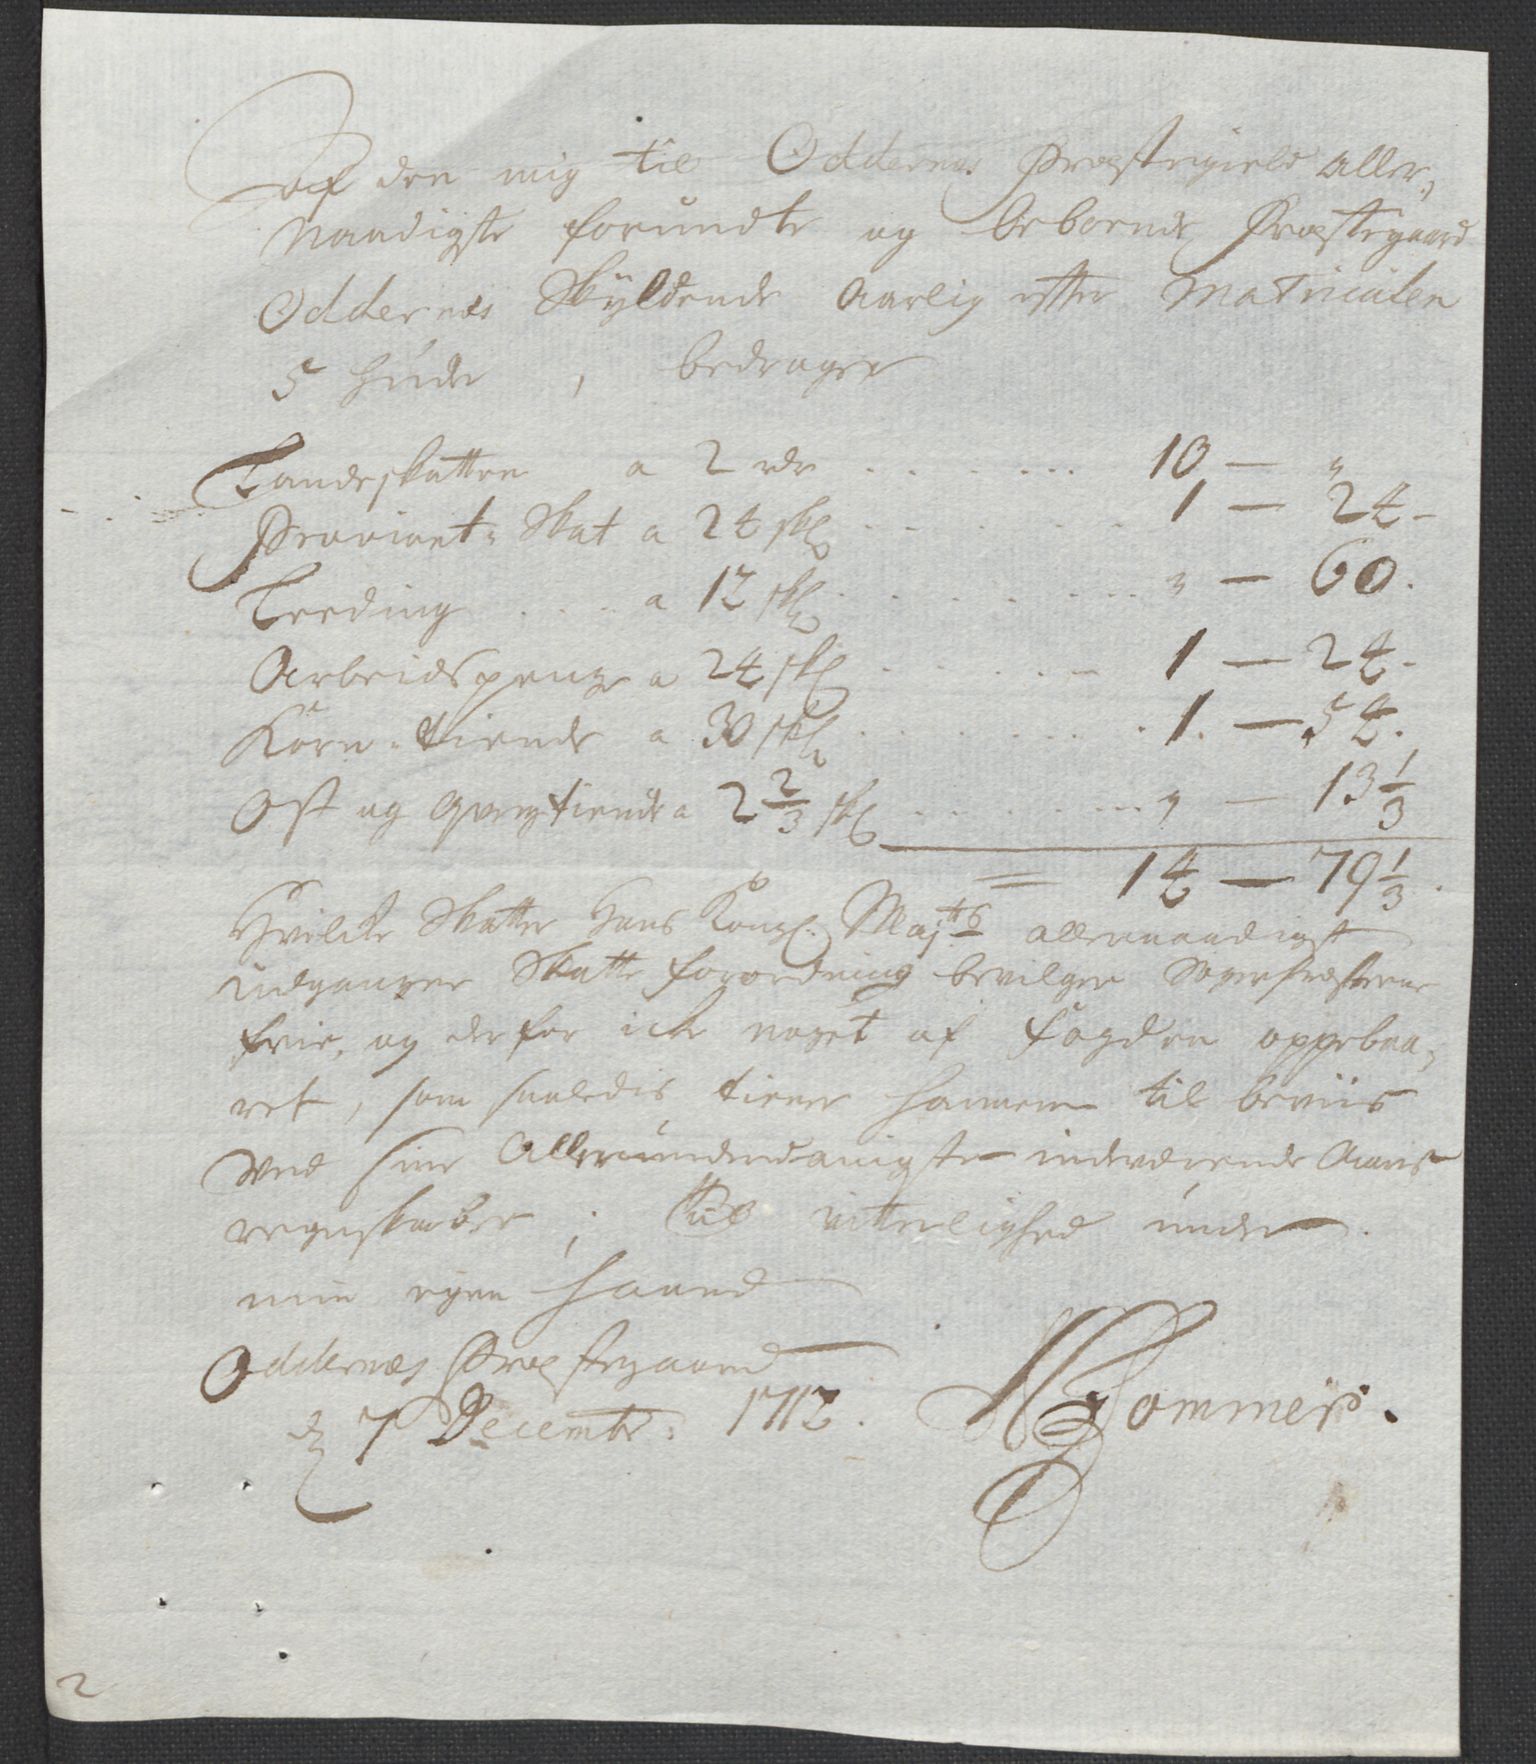 Af den mig til Oddernes Præstegield aller-
naadigste forundte og beboende Præstegaard
Oddernes Skyldende Aarlig effter Matriculen
5 hude, bedrager
Landskatten a 2 rdr . . . . . . . 10 — "
Proviant-Skat a 24 skl . . . . . . 1 — 24 -
Leeding . . . . a 12 skl . . . . . . . " — 60.
Arbeidspenge a 24 skl . . . . . . 1 — 24 -
Korn-tiende a 30 skl . . . . . . . 1. — 54.
Ost og qvegtiende a 2 2/3 skl . . . . . . . " — 13 1/3
= 14 — 79 1/3.
Hvilke Skatter Hans Kongl. Majtts allernaadigst
udgangne Skatte forordning bevilger Sognepræsterne
frie, og derfor icke noget af fogden oppebaa-
ret, som saaledis tiener hannem til beviis
ved sine Allerunderdanigste indeværende Aars
regnskaber; til vitterlighed under
min egen haand
Oddernes Præstegaard
d 7 Decembr: 1712. Sommer.
2